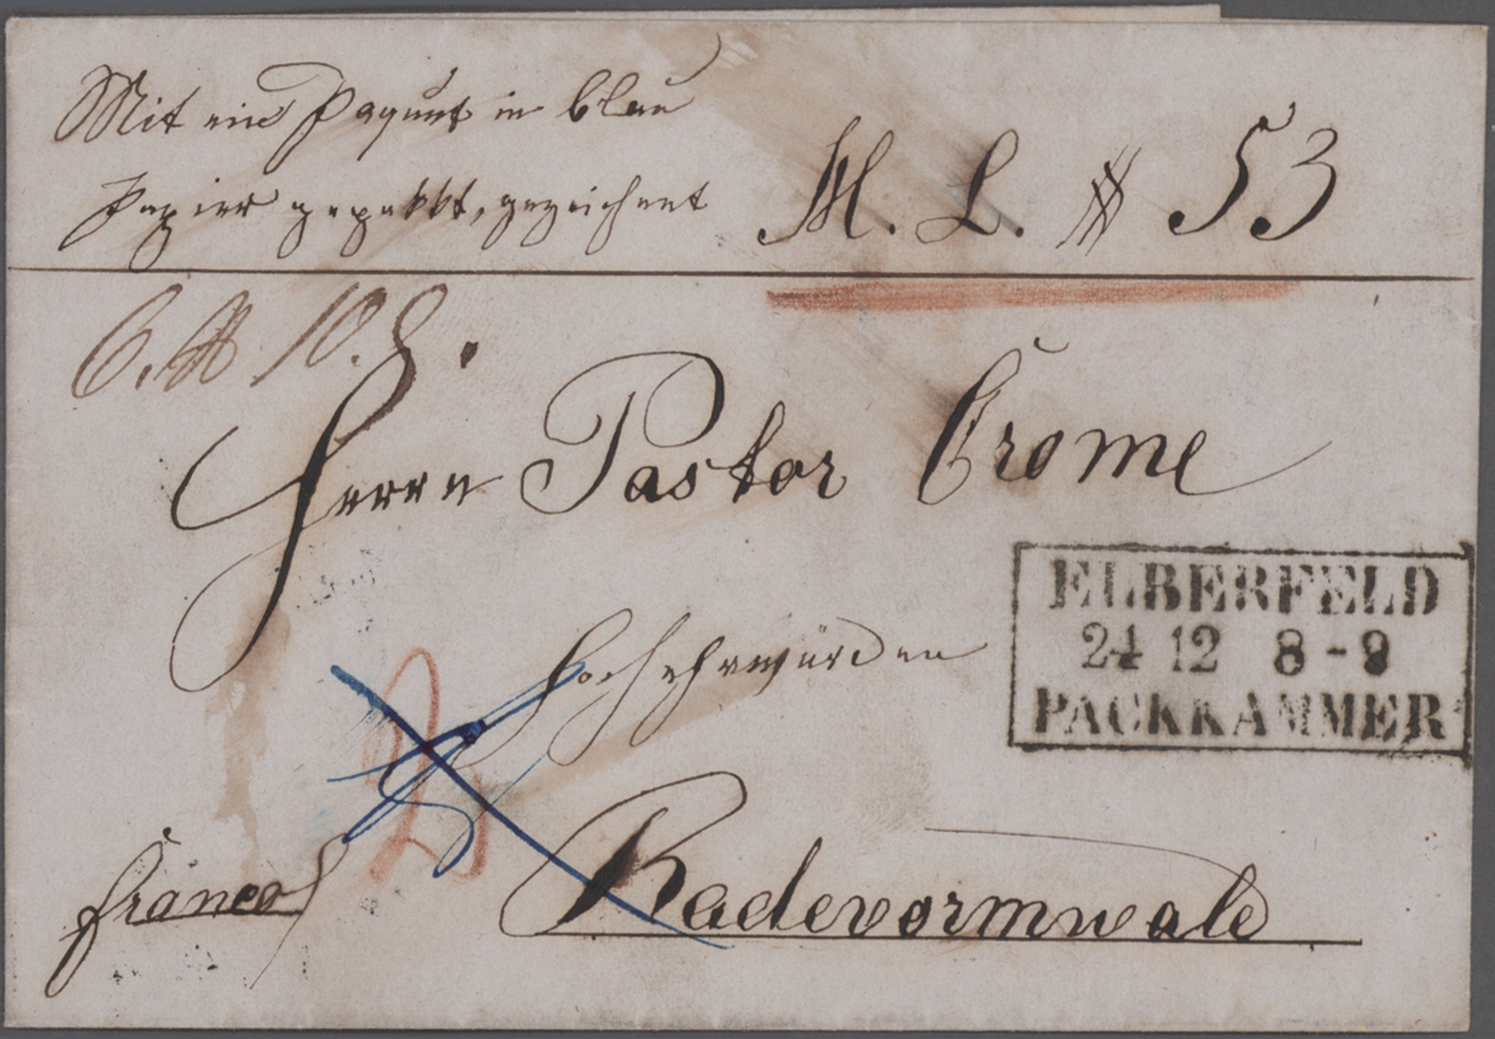 Mit ein Paquet in blau
Papier gepakkt, gezeichnet M. L. # 53
6. ℔ 10.
Herrn Pastor Crome
Hochehrwürden
ELBERFELD
24 12 8-9
PACKKAMMER
franco
Radevormwald